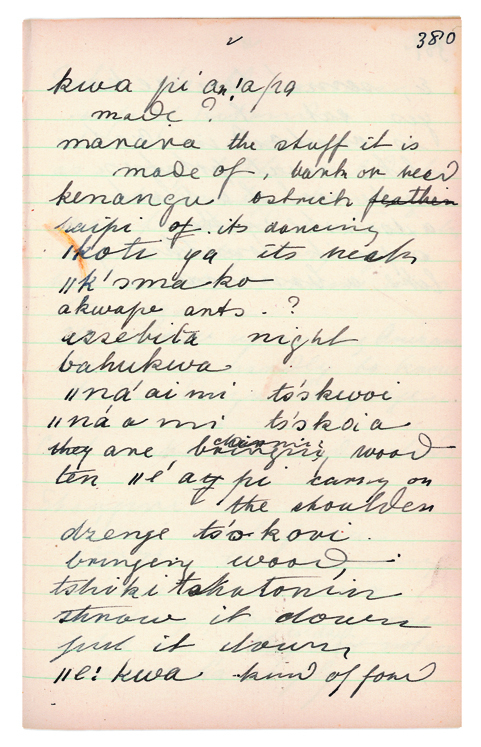 ✓ 380
kwa pi an!apa
made ?
manana the stuff it is
made of, bark or reed
kenangu ostrich feathers
saipi of its dancing
ǀkoti ya its neck
ǁk'smako
akwape ants. ?
ussebita night
bahukwa
ǁná'aimi tsóskwoi
ǁnáomi tsóskoia
they are bringing wood
ten ǁé'a pi carry on
the shoulder
dzenje tsóskori.
bringing wood
tshiki tshatonin
throw it down
put it down
ǁe: kwa kind of food